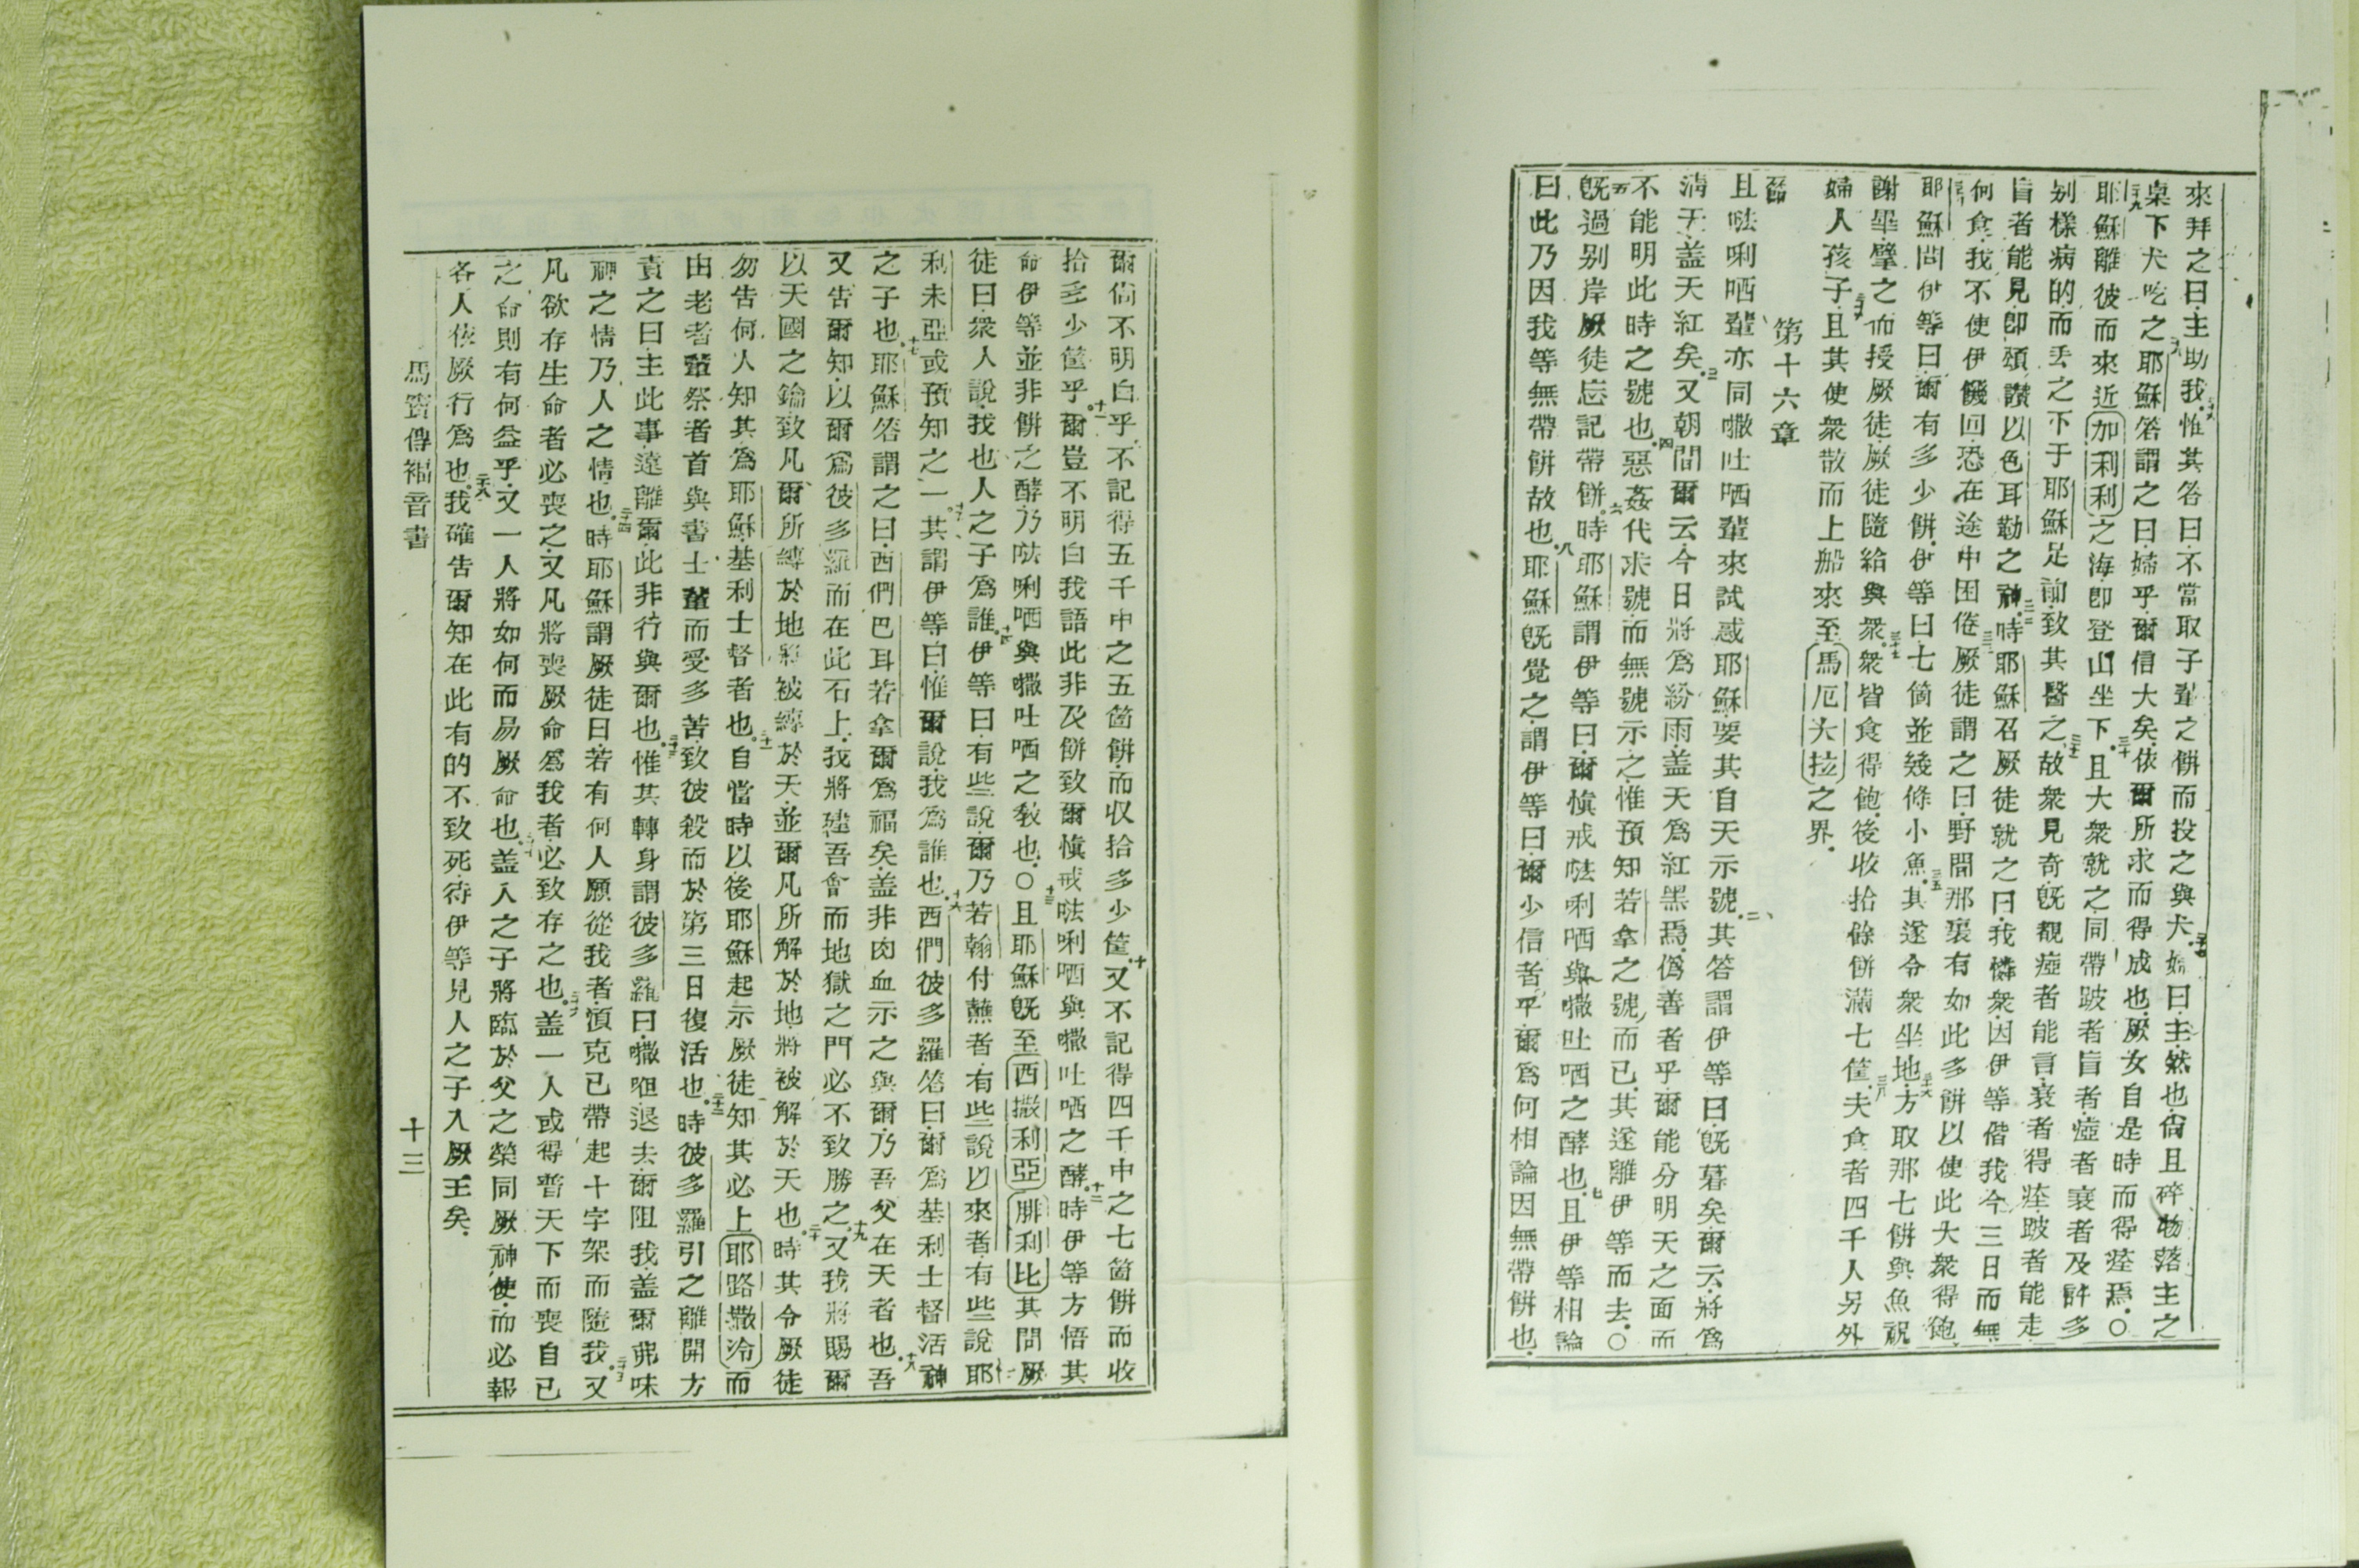 來拜之曰主助我惟其答曰不當取子輩之餅而投之與犬婦曰主然也尙且碎物落主之
桌下犬吃之耶穌答謂之曰婦乎爾信大矣依爾所求而得成也厥女自是時而得痊焉○
耶穌離彼而來近加利利之海卽登山坐下且大衆就之同帶跛者盲者瘂者衰者及許多
别樣病的而丢之下于耶穌足前致其醫之故衆見奇旣覩瘂者能言衰者得痊跛者能走
盲者能見卽頌讚以色耳勒之神時耶穌召厥徒就之曰我憐衆因伊等偕我今三日而無
何食我不使伊饑回恐在途中困倦厥徒謂之曰野間那裏有如此多餅以使此大衆得飽
耶穌問伊等曰爾有多少餅伊等曰七箇並幾條小魚其遂令衆坐地方取那七餅與魚祝
謝畢擘之而授厥徒厥徒隨給與衆衆皆食得飽後收拾餘餅滿七筐夫食者四千人另外
婦人孩子且其使衆散而上船來至馬厄大拉之界
第十六章
節
且㗓唎哂輩亦同㘔吐哂輩來試惑耶穌要其自天示號其答謂伊等曰旣暮矣爾云將爲
淸天盖天紅矣又朝間爾云今日將爲紛雨盖天爲紅黑焉僞善者乎爾能分明天之面而
不能明此時之號也惡姦代求號而無號示之惟預知若拿之號而已其遂離伊等而去○
旣過别岸厥徒忘記帶餅時耶穌謂伊等曰爾愼戒㗓唎哂與㘔吐哂之酵也且伊等相論
曰此乃因我等無帶餅故也耶穌旣覺之謂伊等曰爾少信者乎爾爲何相論因無帶餅也
爾尙不明白乎不記得五千中之五箇餅而収拾多少筐又不記得四千中之七箇餅而收
拾多少筐乎爾豈不明白我語此非及餅致爾愼戒㗓唎哂與㘔吐哂之酵時伊等方悟其
命伊等並非餅之酵乃㗓唎哂與㘔吐哂之敎也○且耶穌旣至西撒利亞腓利比其問厥
徒曰衆人說我也人之子爲誰伊等曰有些說爾乃若翰付蘸者有些說以來者有些說耶
利未亞或預知之一其謂伊等曰惟爾說我爲誰也西們彼多羅答曰爾爲基利士督活神
之子也耶穌答謂之曰西們巴耳若拿爾爲福矣盖非肉血示之與爾乃吾父在天者也吾
又告爾知以爾爲彼多羅而在此石上我將建吾會而地獄之門必不致勝之又我將賜爾
以天國之鑰致凡爾所縛於地將被縛於天並爾凡所解於地將被解於天也時其令厥徒
勿告何人知其爲耶穌基利士督者也自當時以後耶穌起示厥徒知其必上耶路撒冷而
由老者輩祭者首與書士輩而受多苦致彼殺而於第三日復活也時彼多羅引之離開方
責之曰主此事遠離爾此非行與爾也惟其轉身謂彼多羅曰㘔呾退去爾阻我盖爾弗味
神之情乃人之情也時耶穌謂厥徒曰若有何人願從我者須克已帶起十字架而隨我又
凡欲存生命者必喪之又凡將喪厥命爲我者必致存之也盖一人或得普天下而喪自已
之命則有何益乎又一人將如何而易厥命也盖人之子將臨於父之榮同厥神使而必報
各人依厥行爲也我確告爾知在此有的不致死待伊等見人之子入厥王矣
馬竇傳福音書 十三